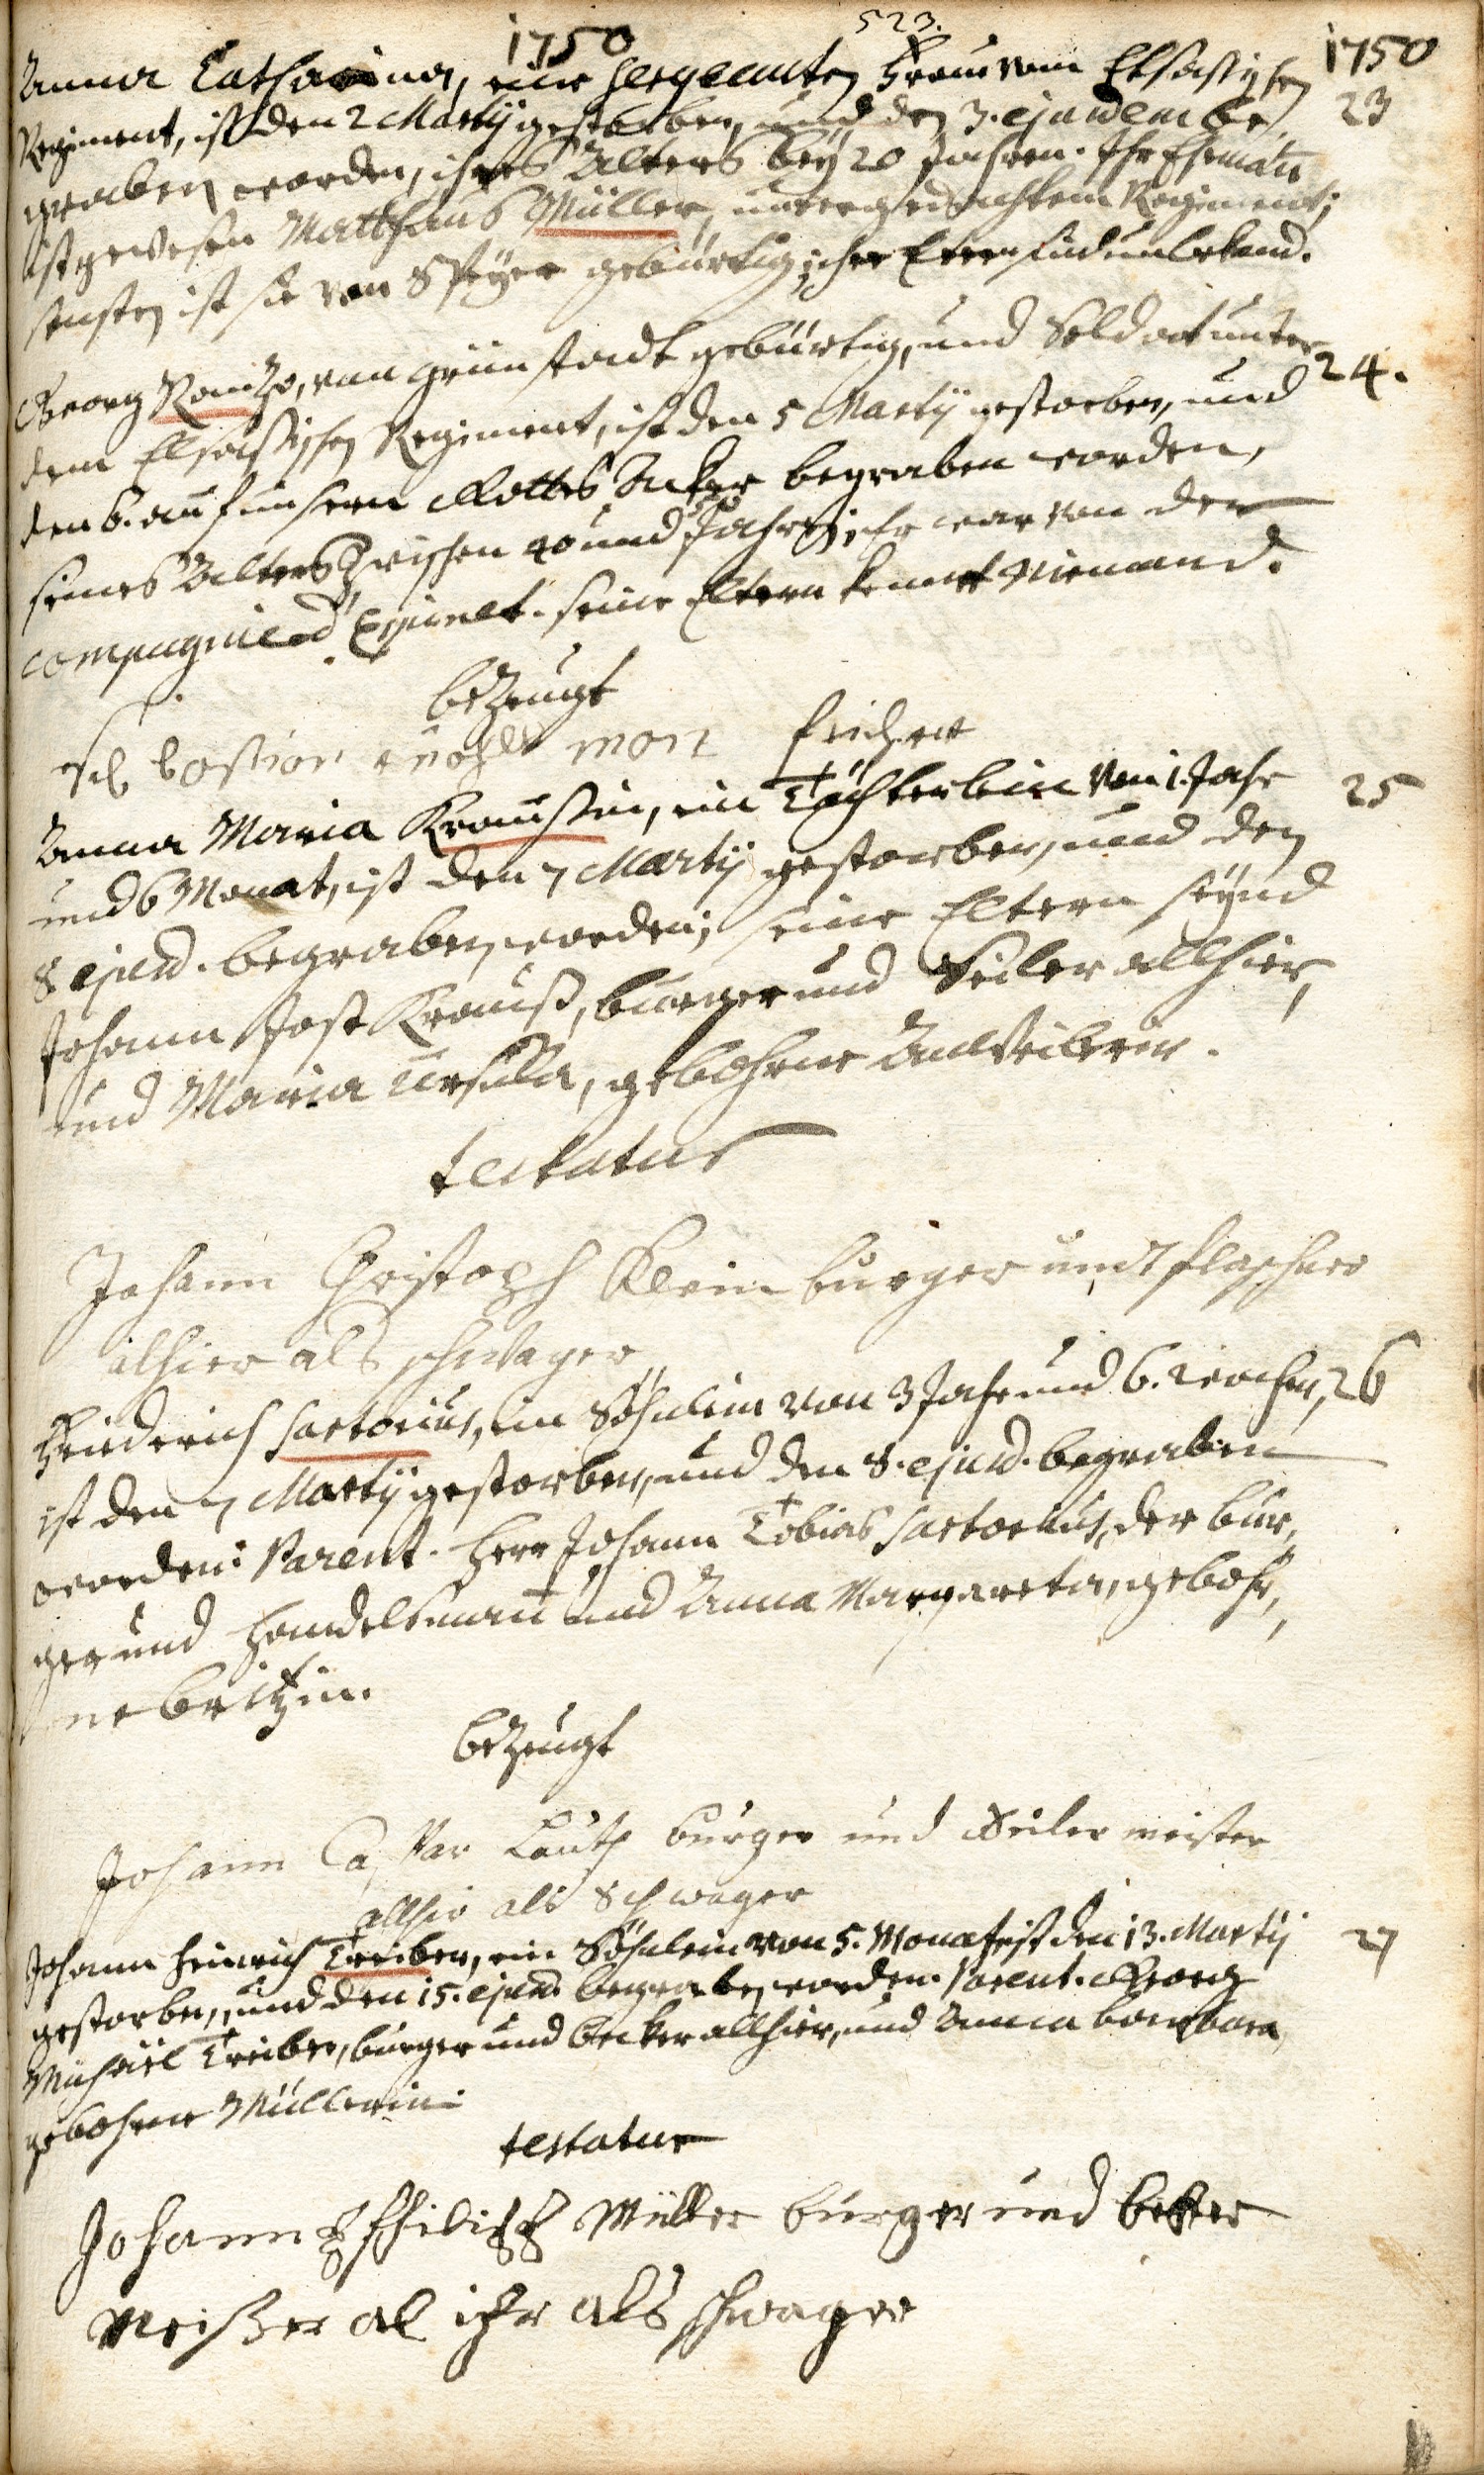 523.
1750 1750
Anna Catharina, eine Sergeanten Frau vom Elsasischen 23
Regiment, ist den 2 Martÿ gestorben, und den 3. ejusdem be
graben worden, ihres Alters beÿ 20 Jahren. Ihr Ehemañ
ist gewesen Matthäus Müller, unter gedachtem Regiment;
sonsten ist sie von Speÿer gebürtig; ihre Eltern sind unbekand.
Georg , von Grünstadt gebürtig, und Soldat unter 24.
dem Elsasischen Regiment, ist den 5 Martÿ gestorben, und
den 6. auf unsern Gottes Acker begraben worden,
seines Alters zwischen 40 und Jahren; Er war von der
compagnie d' seine Eltern kennet Niemand.
bezeugt

Anna Maria Kraussin, ein Töchterlein von 1. Jahr 25
und 6 Monat, ist den 7 Martÿ gestorben, und den
8 ejusd. begraben worden; seine Eltern seÿnd
Johann Jost Krauss, burger und Seiler allhier,
und Maria Ursula, gebohrne
testatur
Johann Christoph Klein burger undt flaschner
alhier als schwager
Friederich Sartorius, ein Söhnlein von 3 Jahr und 6. Wochen, 26
ist den 7 Martÿ gestorben, und den 8. ejusd. begraben
worden: Parent. Herr Johann Tobias Sartorius, der bur,
ger und Handelsmañ und Anna Margareta, gebohr,
ne Britzin.
bezeugt
Johann Caspar Lauth burger und Seiler meister
allhir als Schwager
Johann Heinrich Treiber, ein Söhnlein von 5. Monat ist den 13. Martÿ 27
gestorben, und den 15. ejusd. begraben worden. Parent. Georg
Michäel Treiber, burger und becker allhier, und Anna barbara,
gebohrne Müllerin.
testatur
Johann Philipp Müller burger und becker
Meister al ihr als schwager